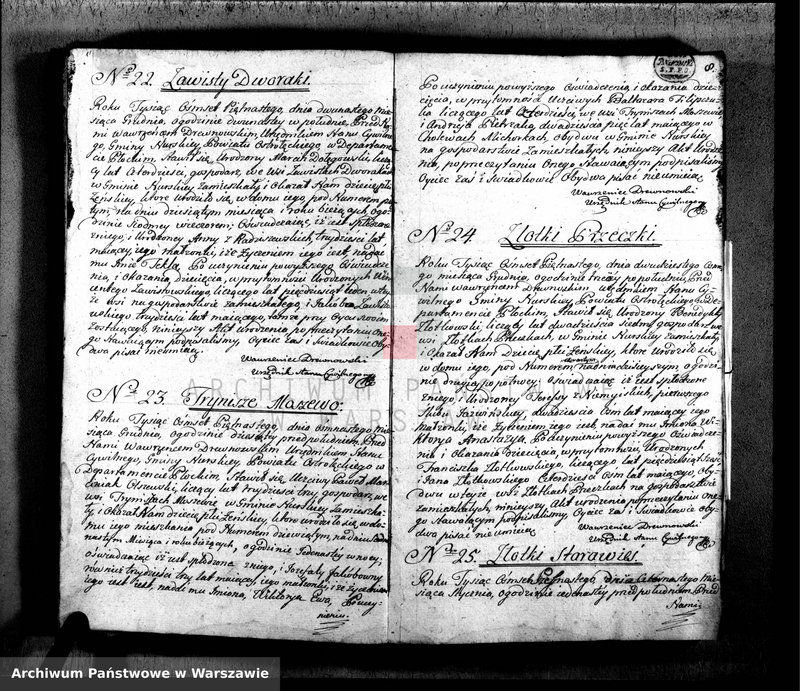 Nro 22. Zawisty Dworaki.
Roku Tysiąc Ośmset Piętnastego, dnia dwunastego mie-
siąca Grudnia, ogodzinie dwunastey w południe, Przed Na-
mi Wawrzeńcem Drewnowskim Urzędnikiem Stanu Cywilne-
go, Gminy Nurskiey Powiatu Ostrołęckiego, w Departamen-
cie Płockim, Stawił się, Urodzony Marcin Dołęgowski, liczą-
cy lat Czterdzieści, gospodarz, we Wsi Zawistach Dworakach
w Gminie Nurskiey Zamieszkały i Okazał Nam dziecię płci
Żeńskiey, które urodziło się, w domu iego, pod Numerem
na dniu dziesiątym miesiąca i roku bieżących, ogo-
dzinie Siodmey wieczorem; Oświadczaiąc, iż iest spłodzone
z niego, i Urodzoney Anny z Kadziszewskich, trzydzieści lat
maiącey, iego małżonki, i że życzeniem iego iest, nadać
mu Imie Tekla, Po uczynieniu powyższego Oświadcze-
nia, i okazania dziecięcia, w przytomności Urodzonych Win-
centego Zawistowskiego, liczącego lat pięćdziesiąt ieden, w tey-
że wsi na gospodarstwie zamieszkałego, i Jakóba
trzydzieści lat maiącego, także przy Oycu swoim
Zostaiącego, ninieyszy Akt Urodzenia po przeczytaniu One-
go Stawaiącym podpisaliśmy, Oyciec zaś i Świadkowie Oby-
dwa pisać nieumieią.
Wawrzeniec Drewnowski
Urzędnik Stanu Cywilnego
Nro 23. Trynisze Maszewo.
Roku Tysiąc Ośmset Piętnastego, dnia Osmnastego mie-
siąca Grudnia, ogodzinie dziesiątey przedpołudniem, Przed
Nami Wawrzeńcem Drewnowskim Urzędnikiem Stanu
Cywilnego, Gminy Nurskiey Powiatu Ostrołęckiego w
Departamencie Płockim, Stawił się, Uczciwy Paweł
Olszewski, liczący lat trzydzieści trzy, gospodarz, we
wsi Tryniszach Maszewie, w Gminie Nurskiey Zamieszka-
ły, i Okazał Nam dziecię płci Żeńskiey, które urodziło się w do-
mu iego mieszkania pod Numerem dziewiątym, na dniu
Miesiąca i roku bieżących, ogodzinie Jedenastey w nocy,
oświadczaiąc iż iest spłodzone z niego, i Jozefaty
również trzydzieści trzy lat maiącey, iego małżonki, i że życzeniem
iego iest, nadać mu Imiona, Wiktorya Ewa, Po uczy-
nieniu
8.
Po uczynieniu powyższego Oświadczenia i okazania dzie-
cięcia, w przytomności Uczciwych Baltazara
liczącego lat Czterdzieści, we wsi Tryniszach Maszewie
i Andrzeia Pietrzaka, dwadzieścia pięć lat maiącego w
Michorkach, Obydwu w Gminie Nurskiey
na gospodarstwie Zamieszkałych, ninieyszy Akt Urodze-
nia, po przeczytaniu Onego Stawaiącym podpisaliśmy
Oyciec zaś i Świadkowie Obydwa pisać nieumieią.
Wawrzeniec Drewnowski
Urzędnik Stanu Cywilnego
Nro 24. Złotki Przeczki.
Roku Tysiąc Ośmset Piętnastego, dnia dwudziestego
miesiąca Grudnia, ogodzinie trzeciey po południu, Przed
Nami Wawrzeńcem Drewnowskim Urzędnikiem Stanu Cy-
wilnego Gminy Nurskiey Powiatu Ostrołęckiego w De-
partamencie Płockim, Stawił się, Urodzony Benedykt
Złotkowski, liczący lat dwadzieścia siedm gospodarz we
wsi Złotkach Przeczkach, w Gminie Nurskiey zamieszkały
i Okazał Nam Dziecię płci Żeńskiey, które Urodziło się
w domu iego, pod Numerem czwartym ogodzi-
nie drugiey po północy, oświadczaiąc iż iest spłodzone
z niego i Urodzoney Teressy z Niemyiskich, pierwszego
dwadzieścia Ośm lat maiącey iego
małżonki, i że życzeniem iego iest, nadać mu Imiona Wi-
ktorya Anastazya, Po uczynieniu powyższego Oświadcze-
nia i Okazania Dziecięcia, w przytomności Urodzonych
Franciszka Złotkowskiego, liczącego lat pięćdziesiąt
i Jana Złotkowskiego Czterdzieści Ośm lat maiącego, Oby-
dwu w teyże wsi Złotkach Przeczkach na gospodarstwie
zamieszkałych, ninieyszy Akt Urodzenia po przeczytaniu One-
go Stawaiącym podpisaliśmy, Oyciec zaś i Świadkowie Oby-
dwa pisać nieumieią
Wawrzeniec Drewnowski
Urzędnik Stanu Cywilnego
Nro 25. Złotki Starawieś
Roku Tysiąc Ośmset Szesnastego, dnia Czternastego mie-
siąca Stycznia, ogodzinie iedenastey przed południem, Przed
Nami
ARCHIWUM PAŃSTWOWE
W WARSZAWIE
Archiwum Państwowe w Warszawie